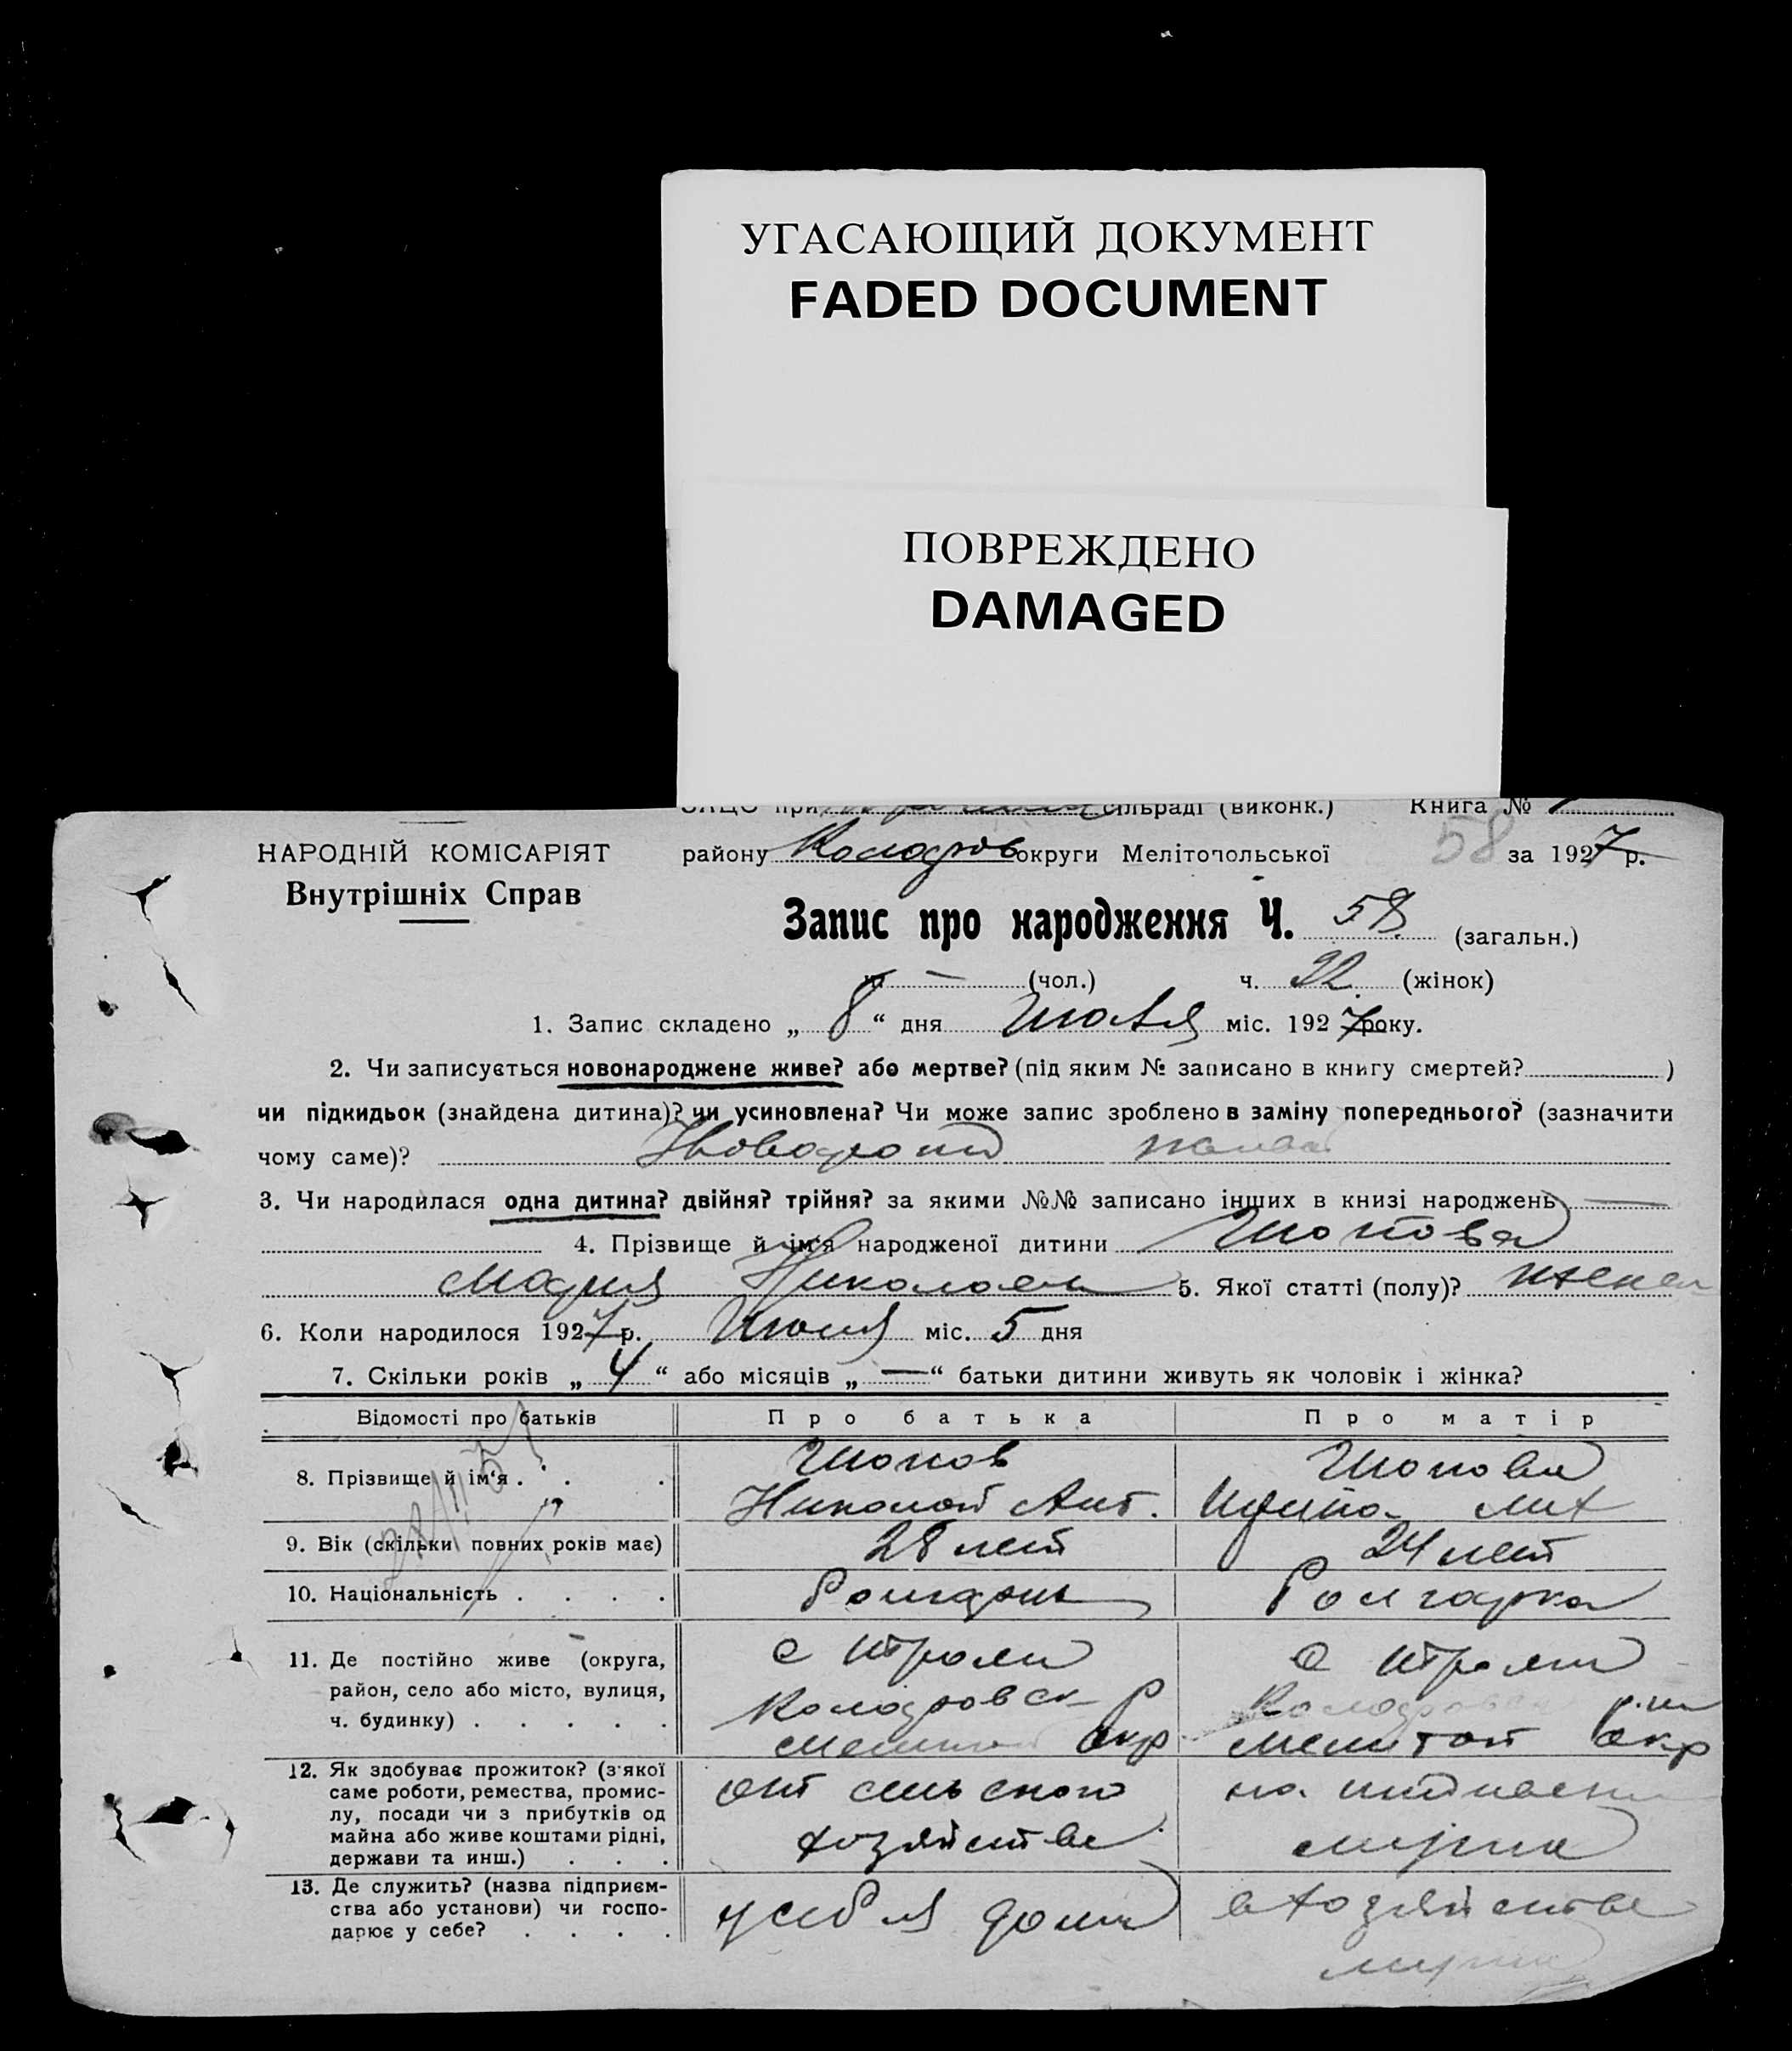 УГАСАЮЩИЙ ДОКУМЕНТ
FADED DOCUMENT
ПОВРЕЖДЕНО
DAMAGED
при сільраді (виконк.) Книга №
НАРОДНІЙ КОМІСАРІЯТ
Внутрішніх Справ
району Коларов округи Мелітопольської 58 за 1927 р.
Запис про народження Ч. 58 (загальн.)
ч. — (чол.) ч. 22 (жінок)
1. Запис складено „ 8 “ дня Июля міс. 1927 року.
2. Чи записується новонароджене живе? або мертве? (під яким № записано в книгу смертей? )
чи підкидьок (знайдена дитина)? чи усиновлена? Чи може запис зроблено в заміну попереднього? (зазначити
чому саме)?
3. Чи народилася одна дитина? двійня? трійня? за якими №№ записано інших в книзі народжень —
4. Прізвище й ім'я народженої дитини Шопова
Мария 5. Якої статті (полу)?
6. Коли народилося 1927 р. міс. 5 дня
7. Скільки років „ 4 “ або місяців „ — “ батьки дитини живуть як чоловік і жінка?
Відомості про батьків Про батька Про матір
8. Прізвище й ім'я . . . Шопов Шопова
Николай Ант.
9. Вік (скільки повних років має) 28 лет 24 лет
10. Національність . . . . Болгарка
11. Де постійно живе (округа,
район, село або місто, вулиця,
ч. будинку) . . . . .
Окр Мелитоп Окр
12. Як здобуває прожиток? (з якої
саме роботи, ремества, промис-
лу, посади чи з прибутків од
майна або живе коштами рідні,
держави та инш.) . . .
от сельского
хозяйства мужа
13. Де служить? (назва підприєм-
ства або установи) чи госпо-
дарює у себе? . . . .
у себя дома в хозяйстве
мужа